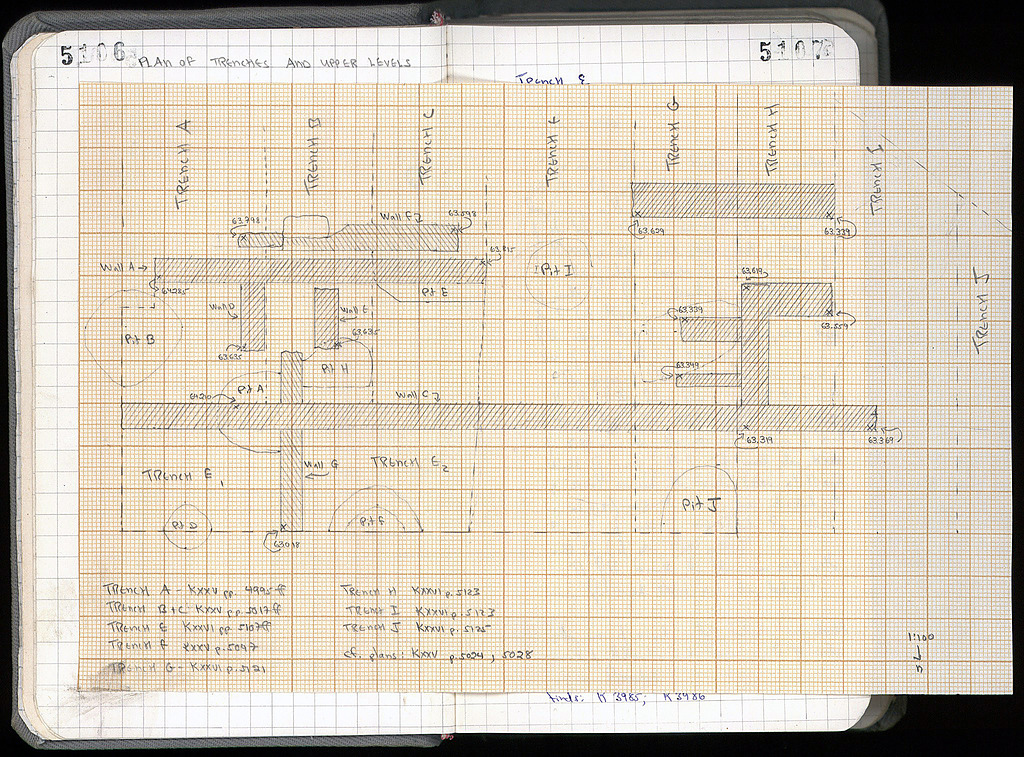 5106 PLAN OF TRENCHES AND UPPER LEVELS
5107
TRENCH E
TRENCH A
TRENCH B
TRENCH C
TRENCH F
TRENCH G
TRENCH H
TRENCH I
TRENCH J
Wall F
63.598
63.798
63.629
63.339
63.815
Wall A →
Pit E
Pit I
63.619
Wall D
Wall E
63.635
63.635
63.339
63.559
Pit B
Pit H
63.349
Pit A
Wall C
63.319
63.369
TRENCH E1
Wall G
TRENCH E2
Pit J
Pit D
Pit F
63.018
TRENCH A - KXXV pp. 4995ff
TRENCH B+C KXXV pp. 5017ff
TRENCH E KXXVI pp 5107ff
TRENCH F KXXV p. 5097
TRENCH G - KXXVI p. 5121
TRENCH H KXXVI p. 5123
TRENCH I KXXVI p. 5123
TRENCH J KXXVI p. 5125
cf. plans: KXXV p. 5024, 5028
1:100
n
finds: K 3985; K 3986